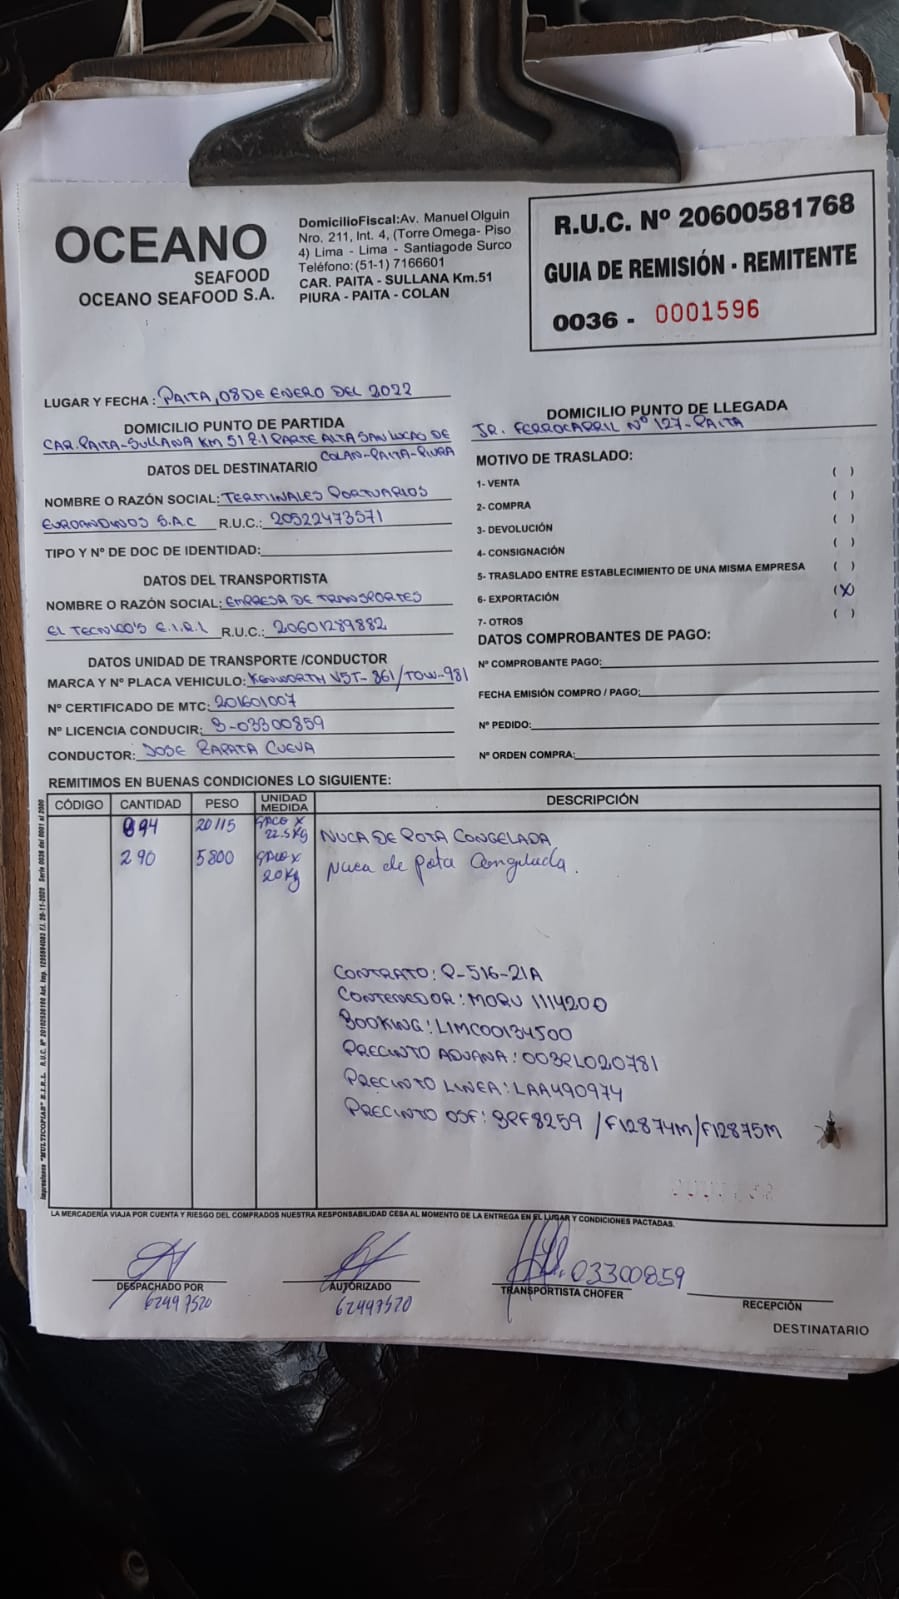 OCEANO
SEAFOOD
OCEANO SEAFOOD S.A.
DomicilioFiscal:Av. Manuel Olguin
Nro. 211, Int. 4, (Torre Omega- Piso
4) Lima - Lima - Santiagode Surco
Teléfono: (51-1) 7166601
CAR. PAITA - SULLANA Km.51
PIURA - PAITA - COLAN
R.U.C. Nº 20600581768
GUIA DE REMISIÓN - REMITENTE
0036 - 0001596
LUGAR Y FECHA : PAITA, 08 DE ENERO DEL 2022
DOMICILIO PUNTO DE PARTIDA
CAR. PAITA-SULLANA KM 51 P.1 PARTE ALTA SAN LUCAS DE
COLAN-PAITA-PIURA
DATOS DEL DESTINATARIO
NOMBRE O RAZÓN SOCIAL: TERMINALES PORTUARIOS
EUROANDINOS S.A.C R.U.C.: 20522473571
TIPO Y Nº DE DOC DE IDENTIDAD:
DATOS DEL TRANSPORTISTA
NOMBRE O RAZÓN SOCIAL: EMPRESA DE TRANSPORTES
EL TECNICO'S E.I.R.L R.U.C.: 20601289882
DATOS UNIDAD DE TRANSPORTE /CONDUCTOR
MARCA Y Nº PLACA VEHICULO: KENWORTH V5T-861/TOW-981
Nº CERTIFICADO DE MTC: 201601007
Nº LICENCIA CONDUCIR: B-03300859
CONDUCTOR: JOSE ZAPATA CUEVA
DOMICILIO PUNTO DE LLEGADA
JR. FERROCARRIL Nº 127-PAITA
MOTIVO DE TRASLADO:
1- VENTA ( )
2- COMPRA ( )
3- DEVOLUCIÓN ( )
4- CONSIGNACIÓN ( )
5- TRASLADO ENTRE ESTABLECIMIENTO DE UNA MISMA EMPRESA ( )
6- EXPORTACIÓN (X)
7- OTROS ( )
DATOS COMPROBANTES DE PAGO:
Nº COMPROBANTE PAGO:
FECHA EMISIÓN COMPRO / PAGO:
Nº PEDIDO:
Nº ORDEN COMPRA:
REMITIMOS EN BUENAS CONDICIONES LO SIGUIENTE:
CÓDIGO CANTIDAD PESO UNIDAD MEDIDA DESCRIPCIÓN
894 20115 SACO X 22.5Kg NUCA DE POTA CONGELADA
290 5800 SACO X 20Kg Nuca de pota Congelada.
CONTRATO: P-516-21A
CONTENEDOR: MORU 1114200
BOOKING: LIMC00134500
PRECINTO ADUANA: 003PL020781
PRECINTO LINEA: LAA490974
PRECINTO OSF: BRF8259 /F12874M/F12875M
LA MERCADERÍA VIAJA POR CUENTA Y RIESGO DEL COMPRADOS NUESTRA RESPONSABILIDAD CESA AL MOMENTO DE LA ENTREGA EN EL LUGAR Y CONDICIONES PACTADAS.
DESPACHADO POR
62497520
AUTORIZADO
62497520
03300859
TRANSPORTISTA CHOFER
RECEPCIÓN
DESTINATARIO